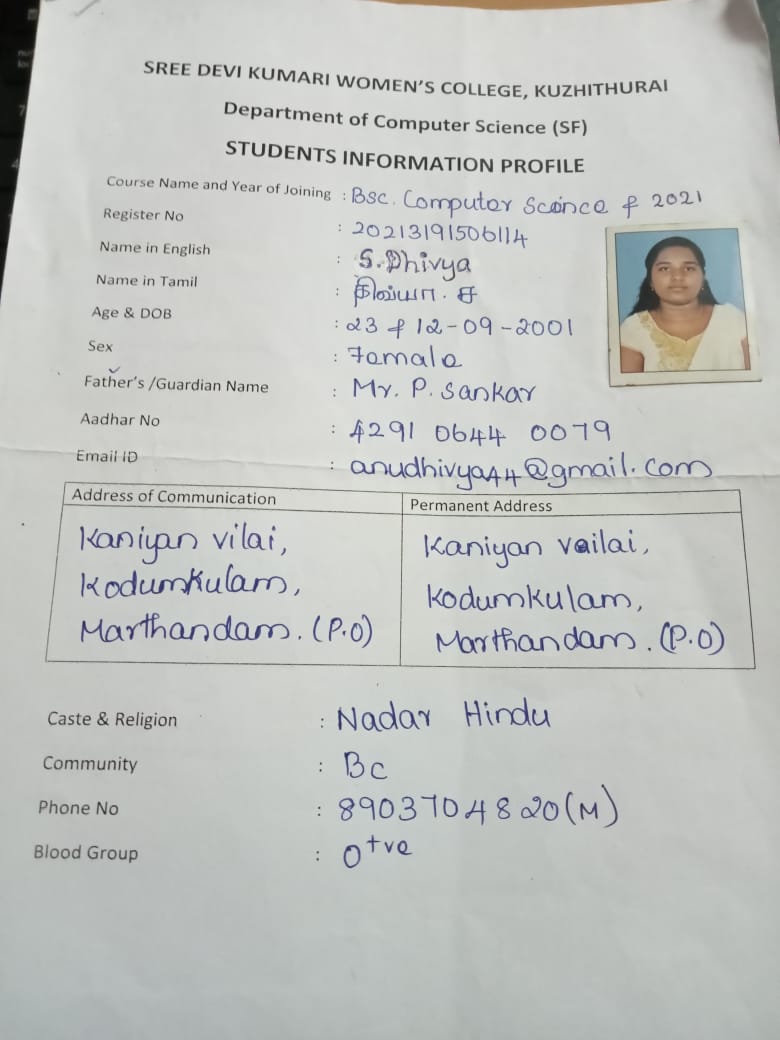 SREE DEVI KUMARI WOMEN'S COLLEGE, KUZHITHURAI
Department of Computer Science (SF)
STUDENTS INFORMATION PROFILE
Course Name and Year of Joining : Bsc. Computer Scence & 2021
Register No : 20213191506114
Name in English : S. Dhivya
Name in Tamil : திவ்யா. ச
Age & DOB : 23 & 12-09-2001
Sex : Female
Father's /Guardian Name : Mr. P. Sankar
Aadhar No : 4291 0644 0079
Email ID : anudhivya44@gmail.com
Address of Communication Permanent Address
Kaniyan vilai, Kaniyan vailai,
Kodumkulam, Kodumkulam,
Marthandam. (P.O) Marthandam. (P.O)
Caste & Religion : Nadar Hindu
Community : Bc
Phone No : 8903704820(M)
Blood Group : O+ve